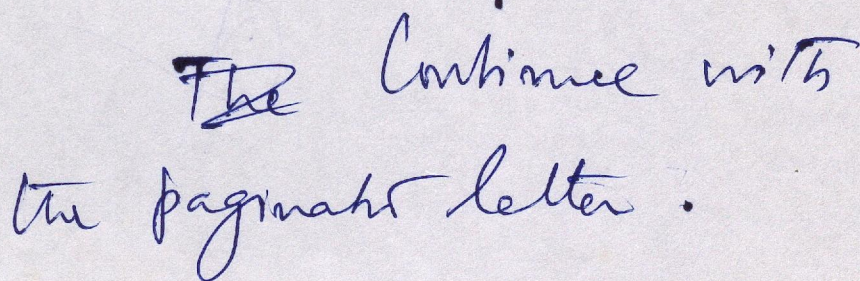 The Continue with
the paginator letter.